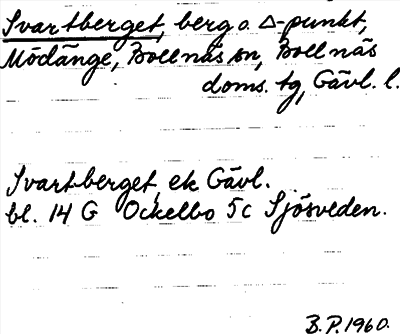 Svartberget, berg o. Δ-punkt,
Mödänge, Bollnäs sn, Bollnäs
doms. tg, Gävl. l.
Svartberget, ek Gävl.
bl. 14 G Ockelbo 5c Sjösveden.
B.P. 1960.